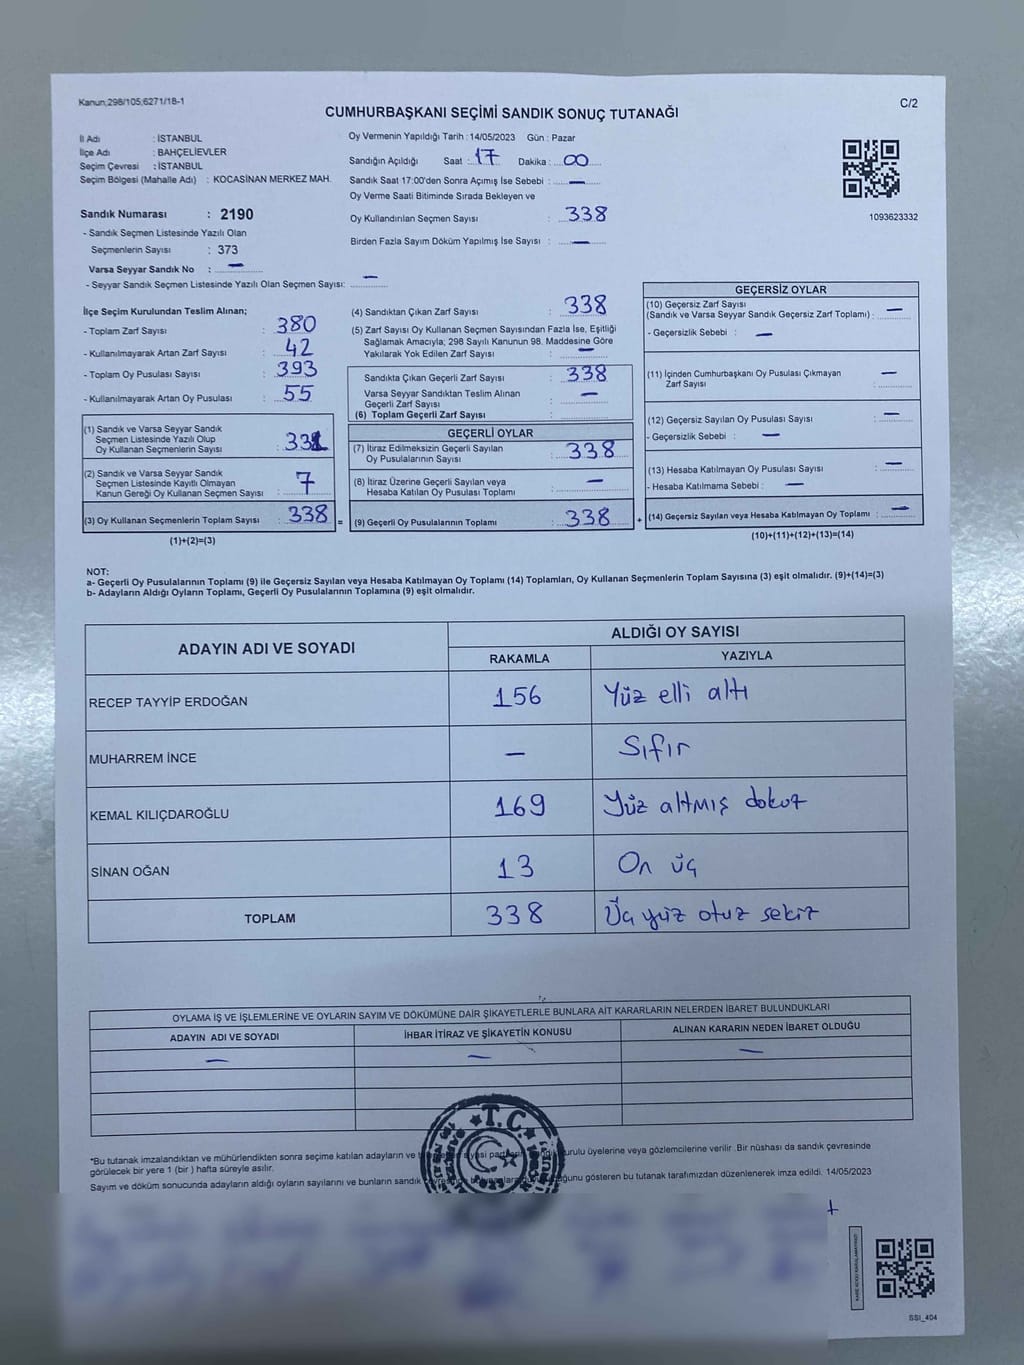 Kanun,298/105,6271/18-1
C/2
CUMHURBAŞKANI SEÇİMİ SANDIK SONUÇ TUTANAĞI
İl Adı : İSTANBUL
İlçe Adı : BAHÇELİEVLER
Seçim Çevresi : İSTANBUL
Seçim Bölgesi (Mahalle Adı) : KOCASİNAN MERKEZ MAH.
Sandık Numarası : 2190
- Sandık Seçmen Listesinde Yazılı Olan
Seçmenlerin Sayısı : 373
Varsa Seyyar Sandık No : —
- Seyyar Sandık Seçmen Listesinde Yazılı Olan Seçmen Sayısı: —
Oy Vermenin Yapıldığı Tarih : 14/05/2023 Gün : Pazar
Sandığın Açıldığı Saat : 17 Dakika : 00
Sandık Saat 17:00'den Sonra Açımış İse Sebebi : —
Oy Verme Saati Bitiminde Sırada Bekleyen ve
Oy Kullandırılan Seçmen Sayısı : 338
Birden Fazla Sayım Döküm Yapılmış İse Sayısı : —
1093623332
İlçe Seçim Kurulundan Teslim Alınan;
- Toplam Zarf Sayısı : 380
- Kullanılmayarak Artan Zarf Sayısı : 42
- Toplam Oy Pusulası Sayısı : 393
- Kullanılmayarak Artan Oy Pusulası : 55
(1) Sandık ve Varsa Seyyar Sandık
Seçmen Listesinde Yazılı Olup
Oy Kullanan Seçmenlerin Sayısı : 331
(2) Sandık ve Varsa Seyyar Sandık
Seçmen Listesinde Kayıtlı Olmayan
Kanun Gereği Oy Kullanan Seçmen Sayısı : 7
(3) Oy Kullanan Seçmenlerin Toplam Sayısı : 338 =
(1)+(2)=(3)
(4) Sandıktan Çıkan Zarf Sayısı : 338
(5) Zarf Sayısı Oy Kullanan Seçmen Sayısından Fazla İse, Eşitliği
Sağlamak Amacıyla; 298 Sayılı Kanunun 98. Maddesine Göre
Yakılarak Yok Edilen Zarf Sayısı : —
Sandıkta Çıkan Geçerli Zarf Sayısı : 338
Varsa Seyyar Sandıktan Teslim Alınan
Geçerli Zarf Sayısı : —
(6) Toplam Geçerli Zarf Sayısı :
GEÇERLİ OYLAR
(7) İtiraz Edilmeksizin Geçerli Sayılan
Oy Pusulalarının Sayısı : 338
(8) İtiraz Üzerine Geçerli Sayılan veya
Hesaba Katılan Oy Pusulası Toplamı : —
(9) Geçerli Oy Pusulalarının Toplamı : 338 +
GEÇERSİZ OYLAR
(10) Geçersiz Zarf Sayısı
(Sandık ve Varsa Seyyar Sandık Geçersiz Zarf Toplamı) : —
- Geçersizlik Sebebi : —
(11) İçinden Cumhurbaşkanı Oy Pusulası Çıkmayan
Zarf Sayısı : —
(12) Geçersiz Sayılan Oy Pusulası Sayısı : —
- Geçersizlik Sebebi : —
(13) Hesaba Katılmayan Oy Pusulası Sayısı : —
- Hesaba Katılmama Sebebi : —
(14) Geçersiz Sayılan veya Hesaba Katılmayan Oy Toplamı : —
(10)+(11)+(12)+(13)=(14)
NOT:
a- Geçerli Oy Pusulalarının Toplamı (9) ile Geçersiz Sayılan veya Hesaba Katılmayan Oy Toplamı (14) Toplamları, Oy Kullanan Seçmenlerin Toplam Sayısına (3) eşit olmalıdır. (9)+(14)=(3)
b- Adayların Aldığı Oyların Toplamı, Geçerli Oy Pusulalarının Toplamına (9) eşit olmalıdır.
ADAYIN ADI VE SOYADI ALDIĞI OY SAYISI
RAKAMLA YAZIYLA
RECEP TAYYİP ERDOĞAN 156 Yüz elli altı
MUHARREM İNCE — Sıfır
KEMAL KILIÇDAROĞLU 169 Yüz altmış dokuz
SİNAN OĞAN 13 On üç
TOPLAM 338 Üç yüz otuz sekiz
OYLAMA İŞ VE İŞLEMLERİNE VE OYLARIN SAYIM VE DÖKÜMÜNE DAİR ŞİKAYETLERLE BUNLARA AİT KARARLARIN NELERDEN İBARET BULUNDUKLARI
ADAYIN ADI VE SOYADI İHBAR İTİRAZ VE ŞİKAYETİN KONUSU ALINAN KARARIN NEDEN İBARET OLDUĞU
— — —
T.C.
*Bu tutanak imzalandıktan ve mühürlendikten sonra seçime katılan adayların ve siyasi kurulu üyelerine veya gözlemcilerine verilir .Bir nüshası da sandık çevresinde
görülecek bir yere 1 (bir ) hafta süreyle asılır.
Sayım ve döküm sonucunda adayların aldığı oyların sayılarını ve bunların sandık gösteren bu tutanak tarafımızdan düzenlenerek imza edildi. 14/05/2023
SSI_404